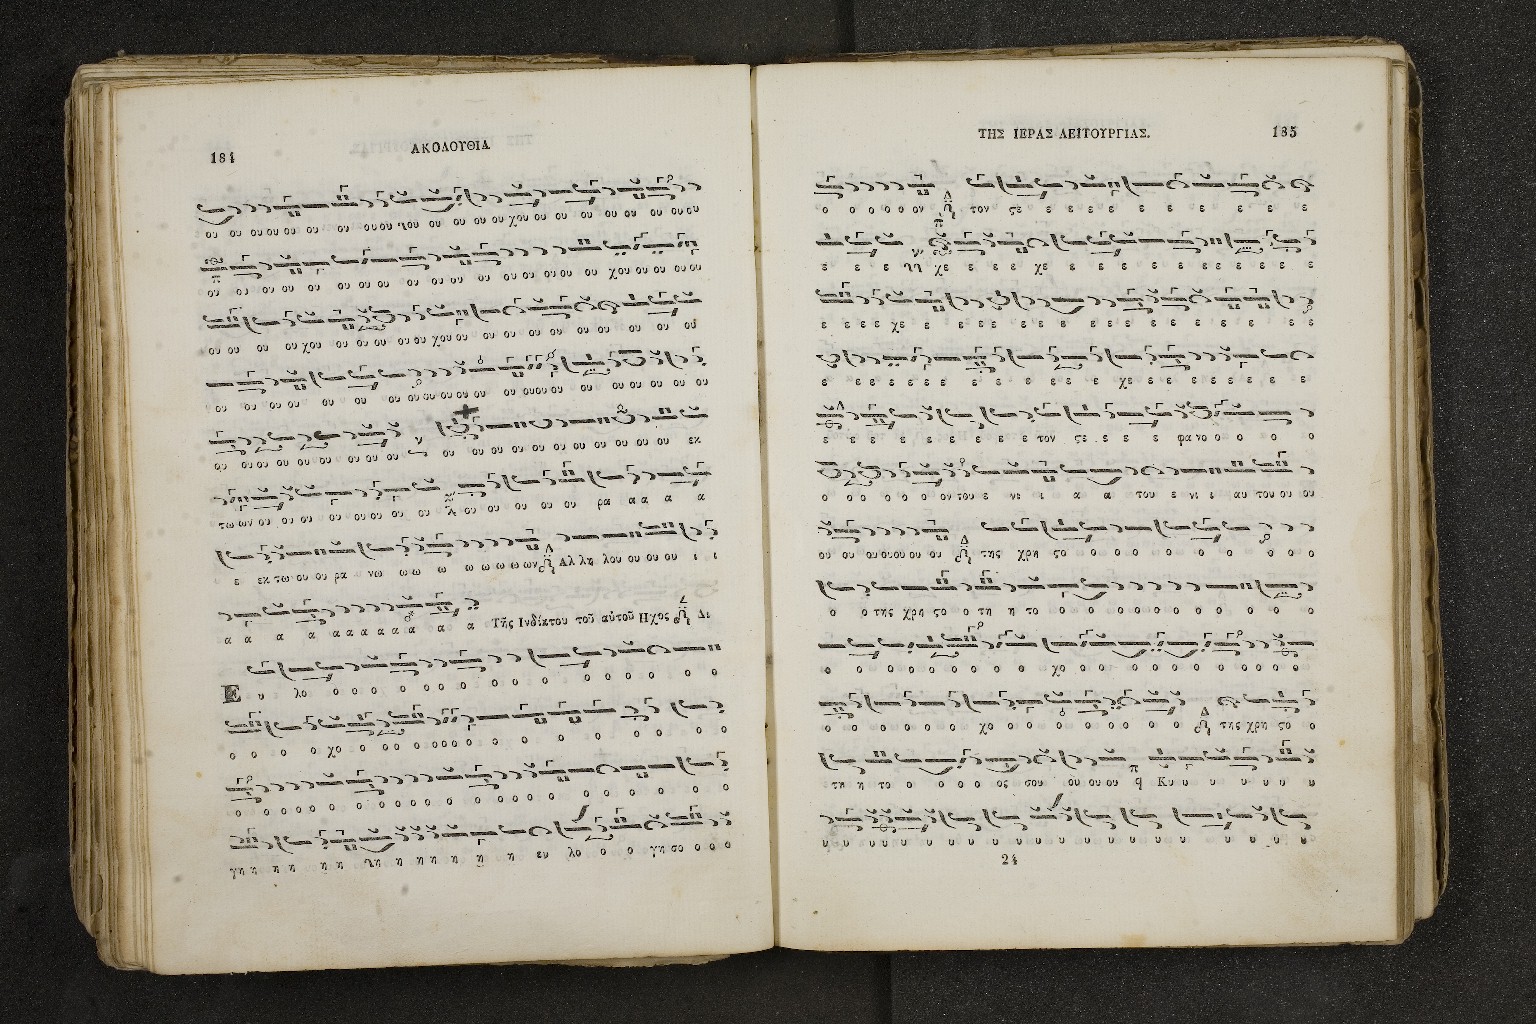 184
ΑΚΟΛΟΥΘΙΑ
ου ου ου ου ου ου ου ου ου ου χου ου ου ου ου ου ου χου ου ου ου ου ου ου ου ου
ου ου ου ου ου ου ου ου ου ου ου ου ου ου ου ου ου ου χου ου ου ου ου
ου ου ου ου χου ου ου ου ου ου χου ου ου ου ου ου ου ου ου ου
ου ου ου ου ου ου ου ου ου ου ου ου ου ου ου ου ου ου ου ου ου
ου ου ου ου ου ου ου ου ου ου ου ου ου ου ου ου ου ου ου ου ου εκ
τω ων ου ου ου ου ου ου ου ου ου ου ου ου ου ου ρα α α α α
ε εκ τω ου ου ρα νω ω ω ω ω ω ω ω ω ων Αλ λη λου ου ου ου ι ι
α α α α α α α α α α α α Τῆς Ἰνδίκτου τοῦ αὐτοῦ Ηχος Δι
Ε υ λο ο ο ο ο ο ο ο ο ο ο ο ο ο ο ο ο
ο ο ο ο χο ο ο ο ο ο ο ο ο ο ο ο ο ο ο ο ο
ο ο ο ο ο ο ο ο ο ο ο ο ο ο ο ο ο ο ο ο
γη η η η η η χη η η η η η η ευ λο ο ο γη σο ο ο ο
ΤΗΣ ΙΕΡΑΣ ΛΕΙΤΟΥΡΓΙΑΣ.
185
ο ο ο ο ο ον τον ςε ε ε ε ε ε ε ε ε ε ε
ε ε ε ε χε ε ε ε χε ε ε ε ε ε ε ε ε ε ε ε
ε ε ε ε χε ε ε ε ε ε ε ε ε ε ε ε ε ε ε ε ε
ε ε ε ε ε ε ε ε ε ε ε ε ε χε ε ε ε ε ε ε ε ε
ε ε ε ε ε ε ε ε ε ε τον ςε ε ε ε φα νο ο ο ο ο
ο ο ο ο ο ο ον του ε νι ι α α του ε νι ι αυ του ου ου
ου ου ου ου ου ου ου της χρη ςο ο ο ο ο ο ο ο ο ο ο
ο ο της χρη ςο ο τη η το ο ο ο ο ο ο ο ο ο ο ο
ο ο ο ο ο ο ο ο ο χο ο ο ο ο ο ο ο ο ο ο
ο ο ο ο ο ο χο ο ο ο ο ο ο ο ο ο της χρη ςο ο
τη η το ο ο ο ο ος σου ου ου ου Κυ υ υ υ υ υ υ
υ υ υ υ υ υ υ υ υ υ υ υ υ υ υ υ υ υ υ υ
24